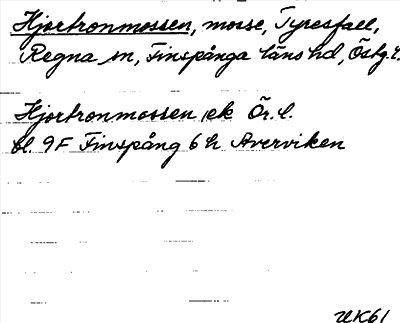 Hjortronmossen, mosse, Tyresfall,
Regna sn, Finspånga läns hd, Östg.l.
Hjortronmossen ek Ör.l.
bl. 9F Finspång 6 h Averviken
UK61